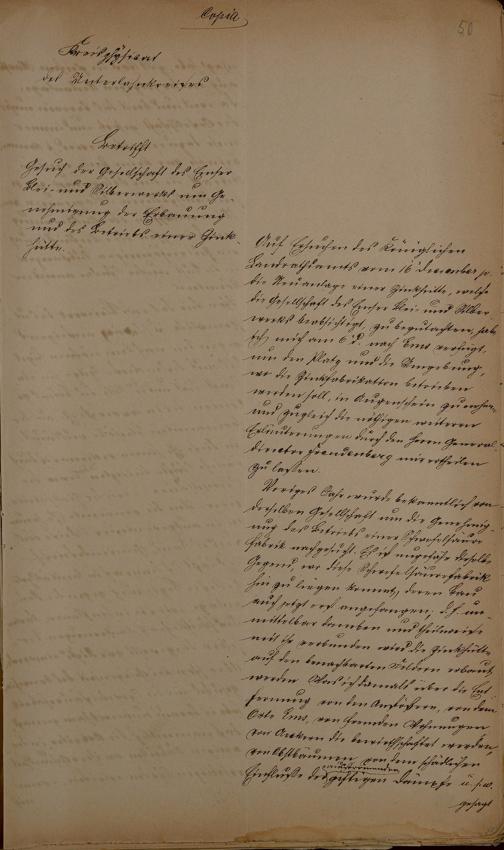 Copia
50
Kreisphysicat
des Unterlahnkreises
Betrifft
Gesuch der Gesellschaft des Emser
Blei- und Silberwerks um Ge-
nehmigung der Erbauung
und des Betriebs einer Zink-
hütte.
Auf Ersuchen des Königlichen
Landrathsamts vom 16 Dezember
die Neuanlage einer Zinkhütte, welche
die Gesellschaft des Emser Blei- und Silber-
werks beabsichtigt, zu begutachten, habe
ich mich am 6 d. nach Ems verfügt,
um den Platz und die Umgebung,
wo die Zinkfabrikation betrieben
werden soll, in Augenschein zu nehmen,
und zugleich die nöthigen weiteren
Erläuterungen durch den Herrn General-
director Freudenberg mir ertheilen
zu lassen.
Voriges Jahr wurde bekanntlich von
derselben Gesellschaft um die Genehmig-
ung des Betriebs einer Schwefelsäure-
fabrik nachgesucht. Es ist ungefähr dieselbe
Gegend, wo diese Schwefelsäurefabrik
hin zu liegen kommt, deren Bau
auch jetzt erst angefangen, d.h. un-
mittelbar daneben und theilweise
mit ihr verbunden wird die Zinkhütte
auf den benachbarten Feldern erbaut
werden. Was ich damals über die Ent-
fernung von den von dem
Orte Ems, von fremden Wohnungen
von Aeckern die bewirthschaftet werden,
von Obstbäumen, von dem schädlichen
Einflusse der giftigen Dämpfe u.s.w.
gesagt